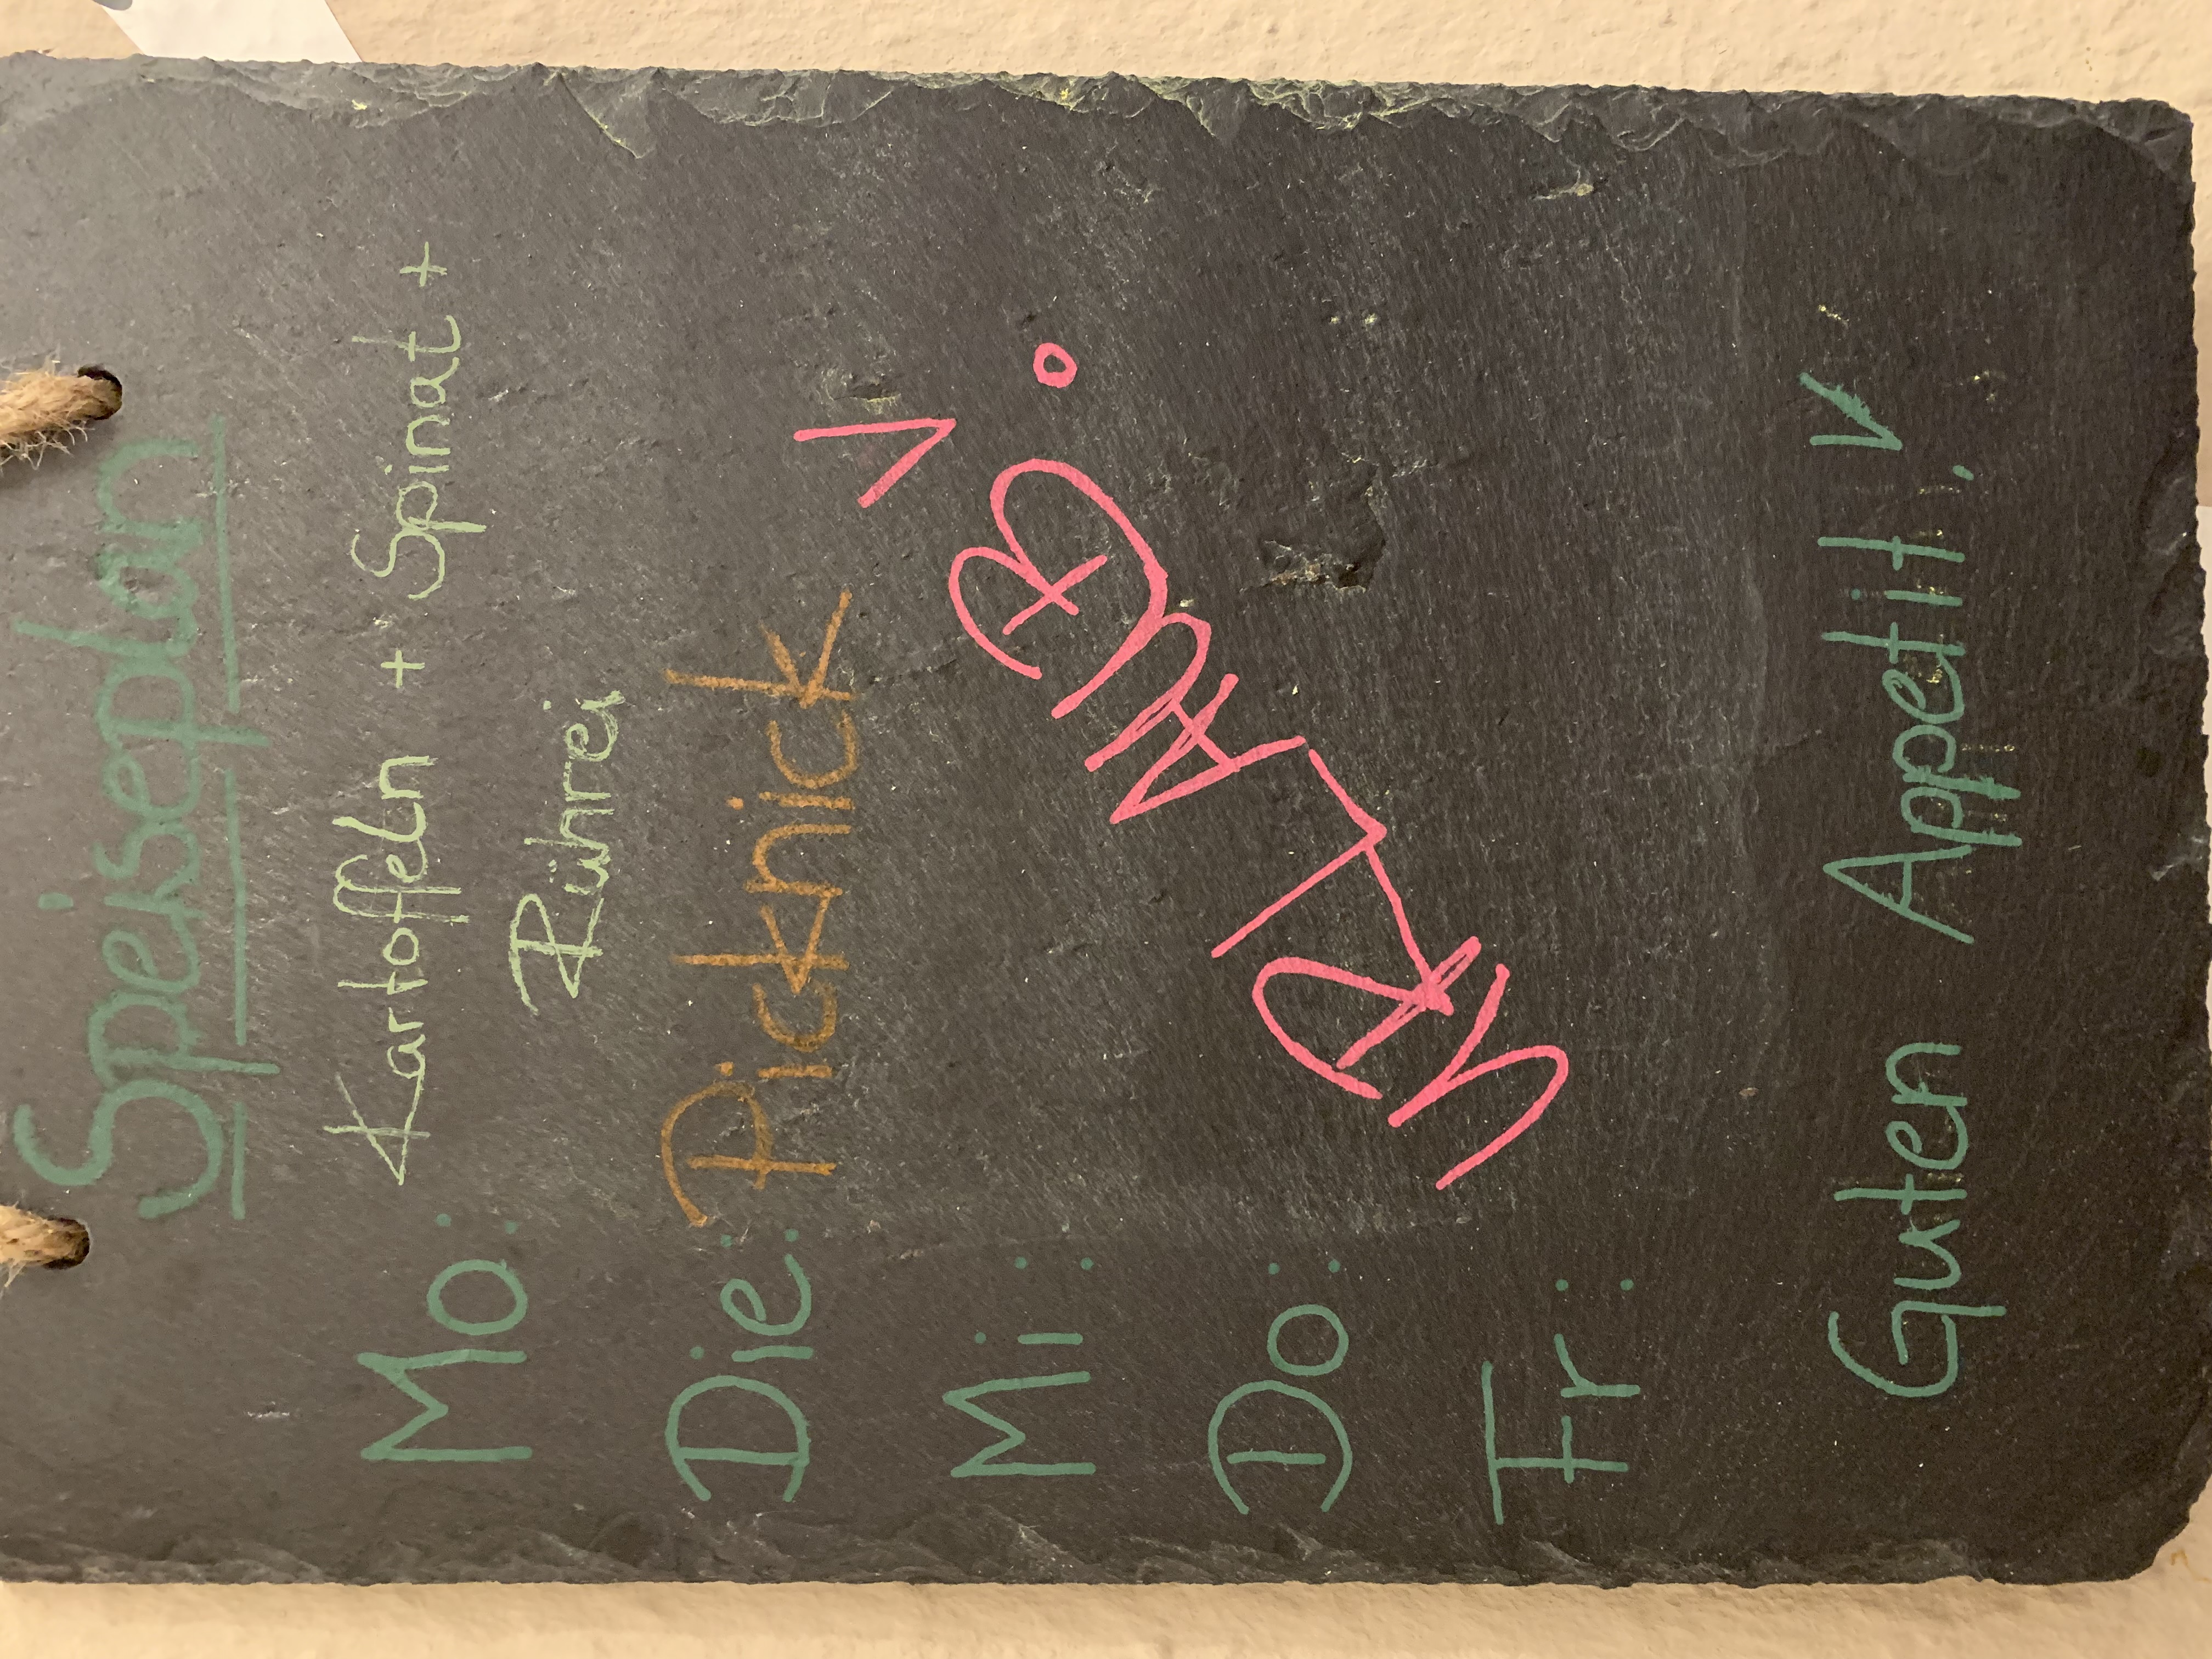 Speiseplan
Mo: Kartoffeln + Spinat +
Rührei
Die: Picknick
Mi:
Do:
Fr:
URLAUB!
Guten Appetit!